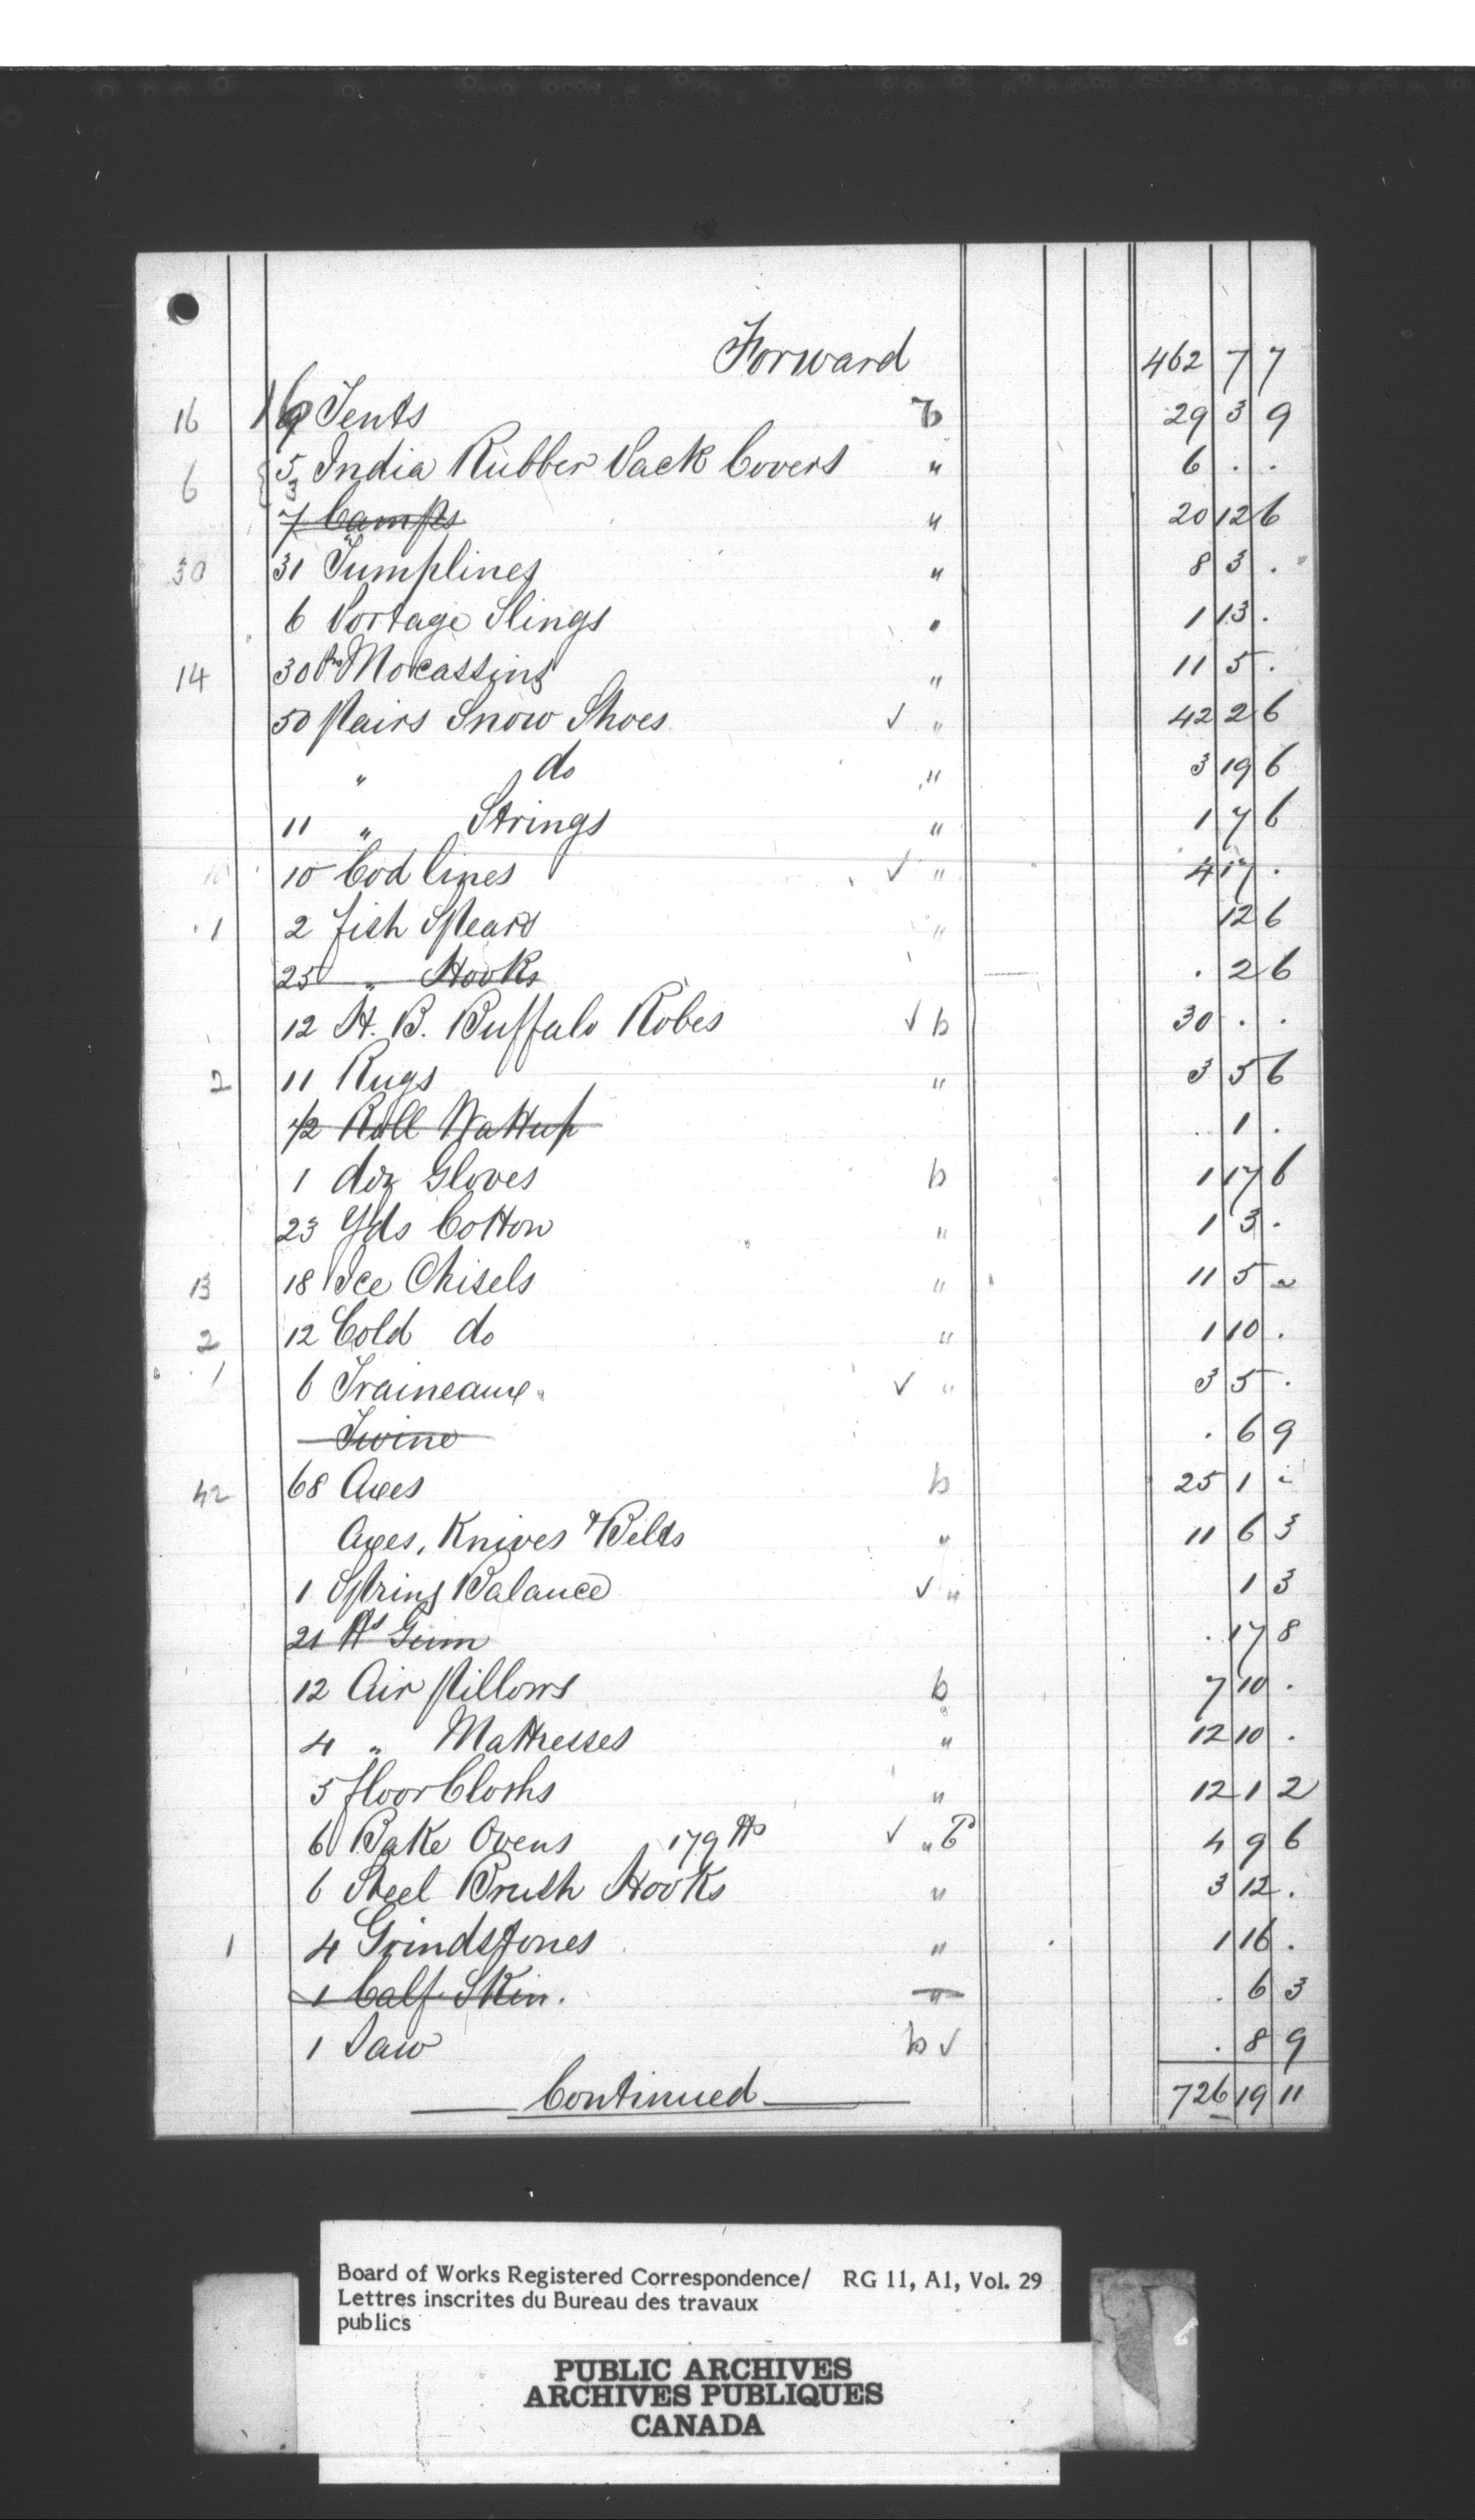 Forward 462 7 7
16 16 Tents b 29 3 9
6 { 5 India Rubber Pack Covers " 6 . .
3
7 Camps " 20 12 6
30 31 Tumplines " 8 3 .
6 Portage Slings " 1 13 .
14 30 prs Mocassins " 11 5 .
50 pairs Snow Shoes ✓ " 42 2 6
" do " 3 19 6
11 " Strings " 1 7 6
10 10 Cod lines ✓ " 4 17 .
1 2 fish Spears " 12 6
25 " Hooks . 2 6
12 H. B. Buffalo Robes ✓ b 30 . .
2 11 Rugs " 3 5 6
1/2 Roll Wattup . 1 .
1 doz Gloves b 1 17 6
23 Yds Cotton " 1 3 .
13 18 Ice Chisels " 11 5 "
2 12 Cold do " 1 10 .
1 6 Traineaux ✓ " 3 5 .
Twine . 6 9
42 68 Axes b 25 1 "
Axes, Knives & Belts " 11 6 3
1 Spring Balance ✓ " 1 3
21 lbs Gum . 17 8
12 Air Pillows b 7 10 .
4 " Mattresses " 12 10 .
5 floor Cloths " 12 1 2
6 Bake Ovens 179 lbs ✓ " b 4 9 6
6 Steel Brush Hooks " 3 12 .
1 4 Grindstones " 1 16 .
1 Calf Skin. " . 6 3
1 Saw b ✓ . 8 9
Continued 726 19 11
Board of Works Registered Correspondence/ RG 11, A1, Vol. 29
Lettres inscrites du Bureau des travaux
publics
PUBLIC ARCHIVES
ARCHIVES PUBLIQUES
CANADA